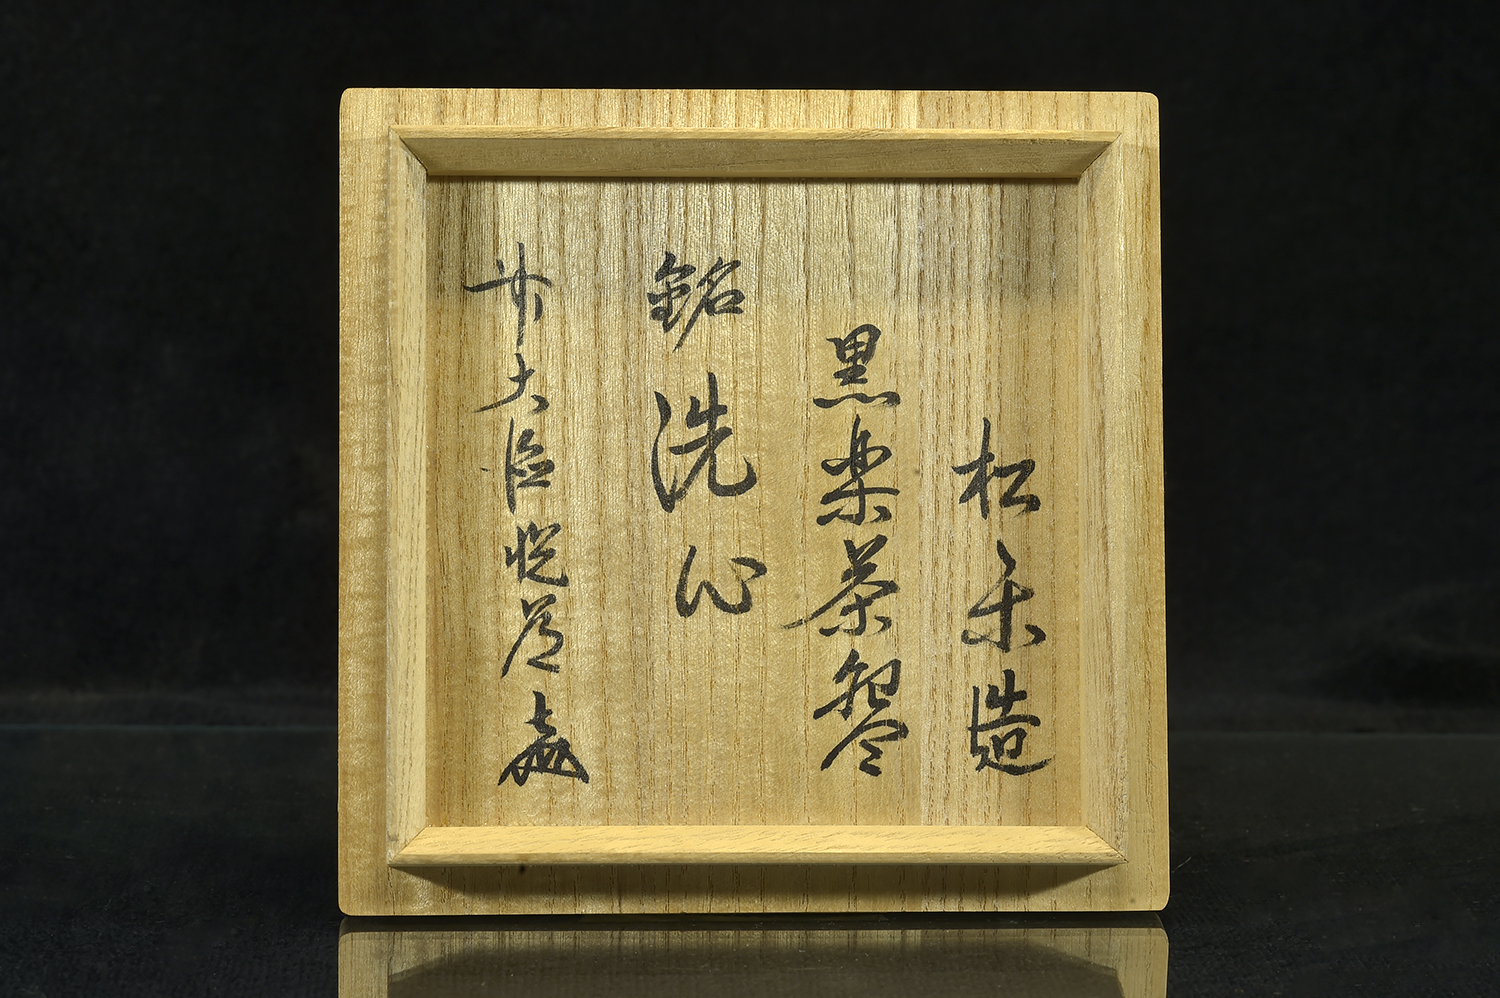 松楽造
黒楽茶碗
銘 洗心
前大徳悦道